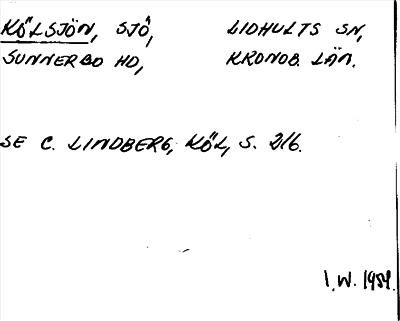 KÖLSJÖN, SJÖ, LIDHULTS SN,
SUNNERBO HD, KRONOB. LÄN.
SE C. LINDBERG, KÖL, S. 216.
I.W. 1984.